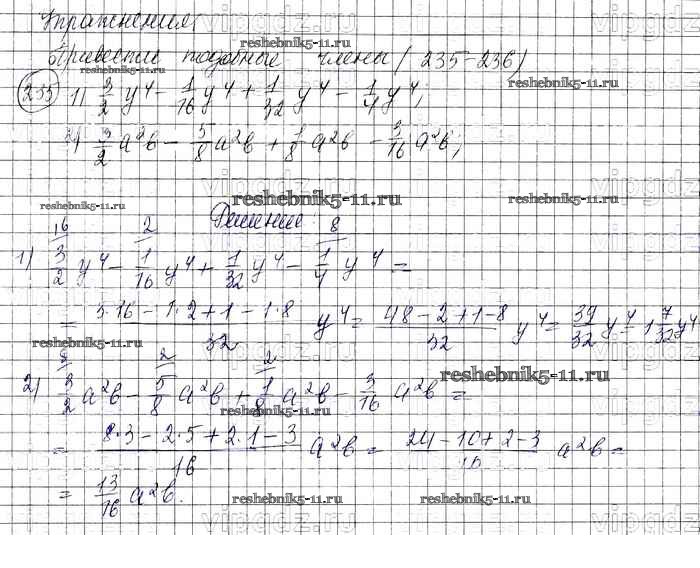 Упражнения
Привести подобные члены (235-236)
235 1) 3/2 y⁴ - 1/16 y⁴ + 1/32 y⁴ - 1/4 y⁴;
2) 3/2 a²b - 5/8 a²b + 1/8 a²b - 3/16 a²b;
Решение
1) 3/2 y⁴ - 1/16 y⁴ + 1/32 y⁴ - 1/4 y⁴ =
= 3·16 - 1·2 + 1 - 1·8 / 32 y⁴ = 48 - 2 + 1 - 8 / 32 y⁴ = 39/32 y⁴ = 1 7/32 y⁴
2) 3/2 a²b - 5/8 a²b + 1/8 a²b - 3/16 a²b =
= 8·3 - 2·5 + 2·1 - 3 / 16 a²b = 24 - 10 + 2 - 3 / 16 a²b =
= 13/16 a²b.
reshebnik5-11.ru
vipgdz